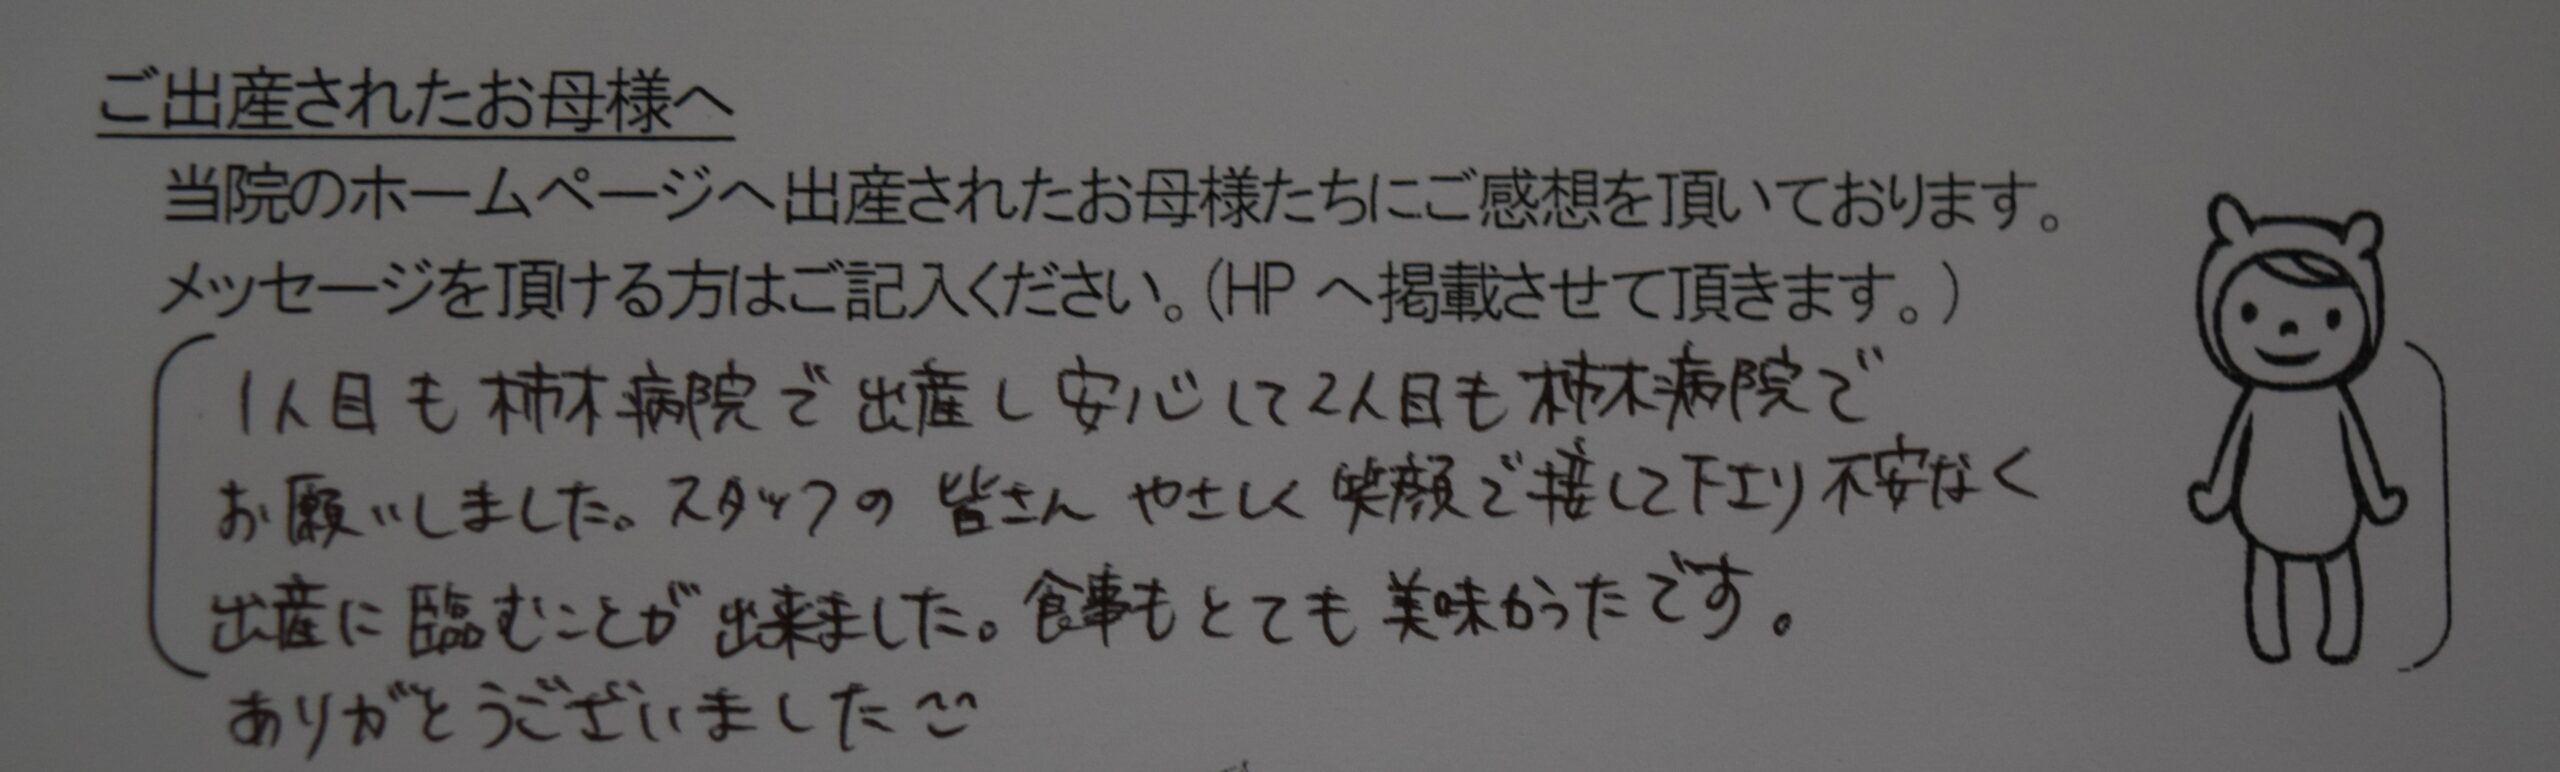 ご出産されたお母様へ
当院のホームページへ出産されたお母様たちにご感想を頂いております。
メッセージを頂ける方はご記入ください。(HP へ掲載させて頂きます。)
1人目も柿木病院で出産し安心して2人目も柿木病院で
お願いしました。スタッフの皆さんやさしく笑顔で接して下エリ不安なく
出産に臨むことが出来ました。食事もとても美味かったです。
ありがとうございました^^